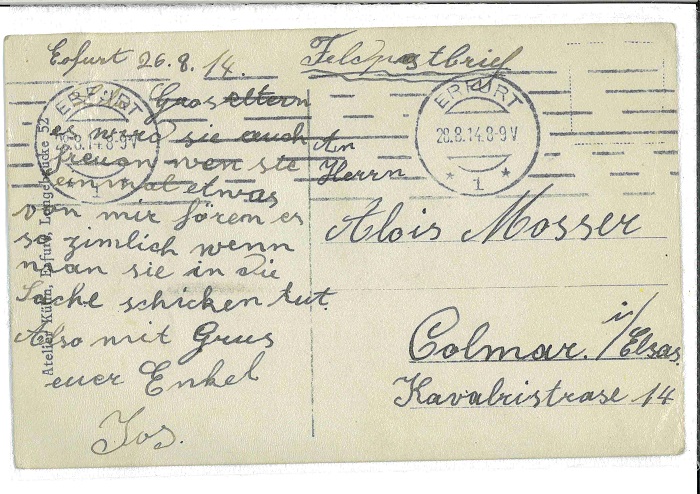 Erfurt 26.8.14.
Feldpostbrief
Grosseltern
es wird sie auch
freuen wen sie
einmal etwas
von mir hören es
so zimlich wenn
man sie in die
Sache schicken tut.
Also mit Grus
euer Enkel
Jos.
An
Herrn
Alois Mosser
Colmar. i/Elsas.
Kavalristrase 14
ERFURT
28.8.14.8-9V
* 1 *
ERFURT
8.14.8-9V
1
Atelier Kühn, Erfurt, Langebrücke 52